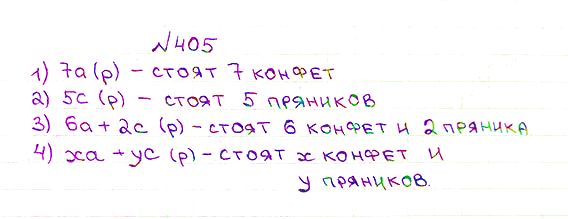 №405
1) 7а (р) – стоят 7 конфет
2) 5с (р) – стоят 5 пряников
3) 6а + 2с (р) – стоят 6 конфет и 2 пряника
4) ха + ус (р) – стоят х конфет и
у пряников.